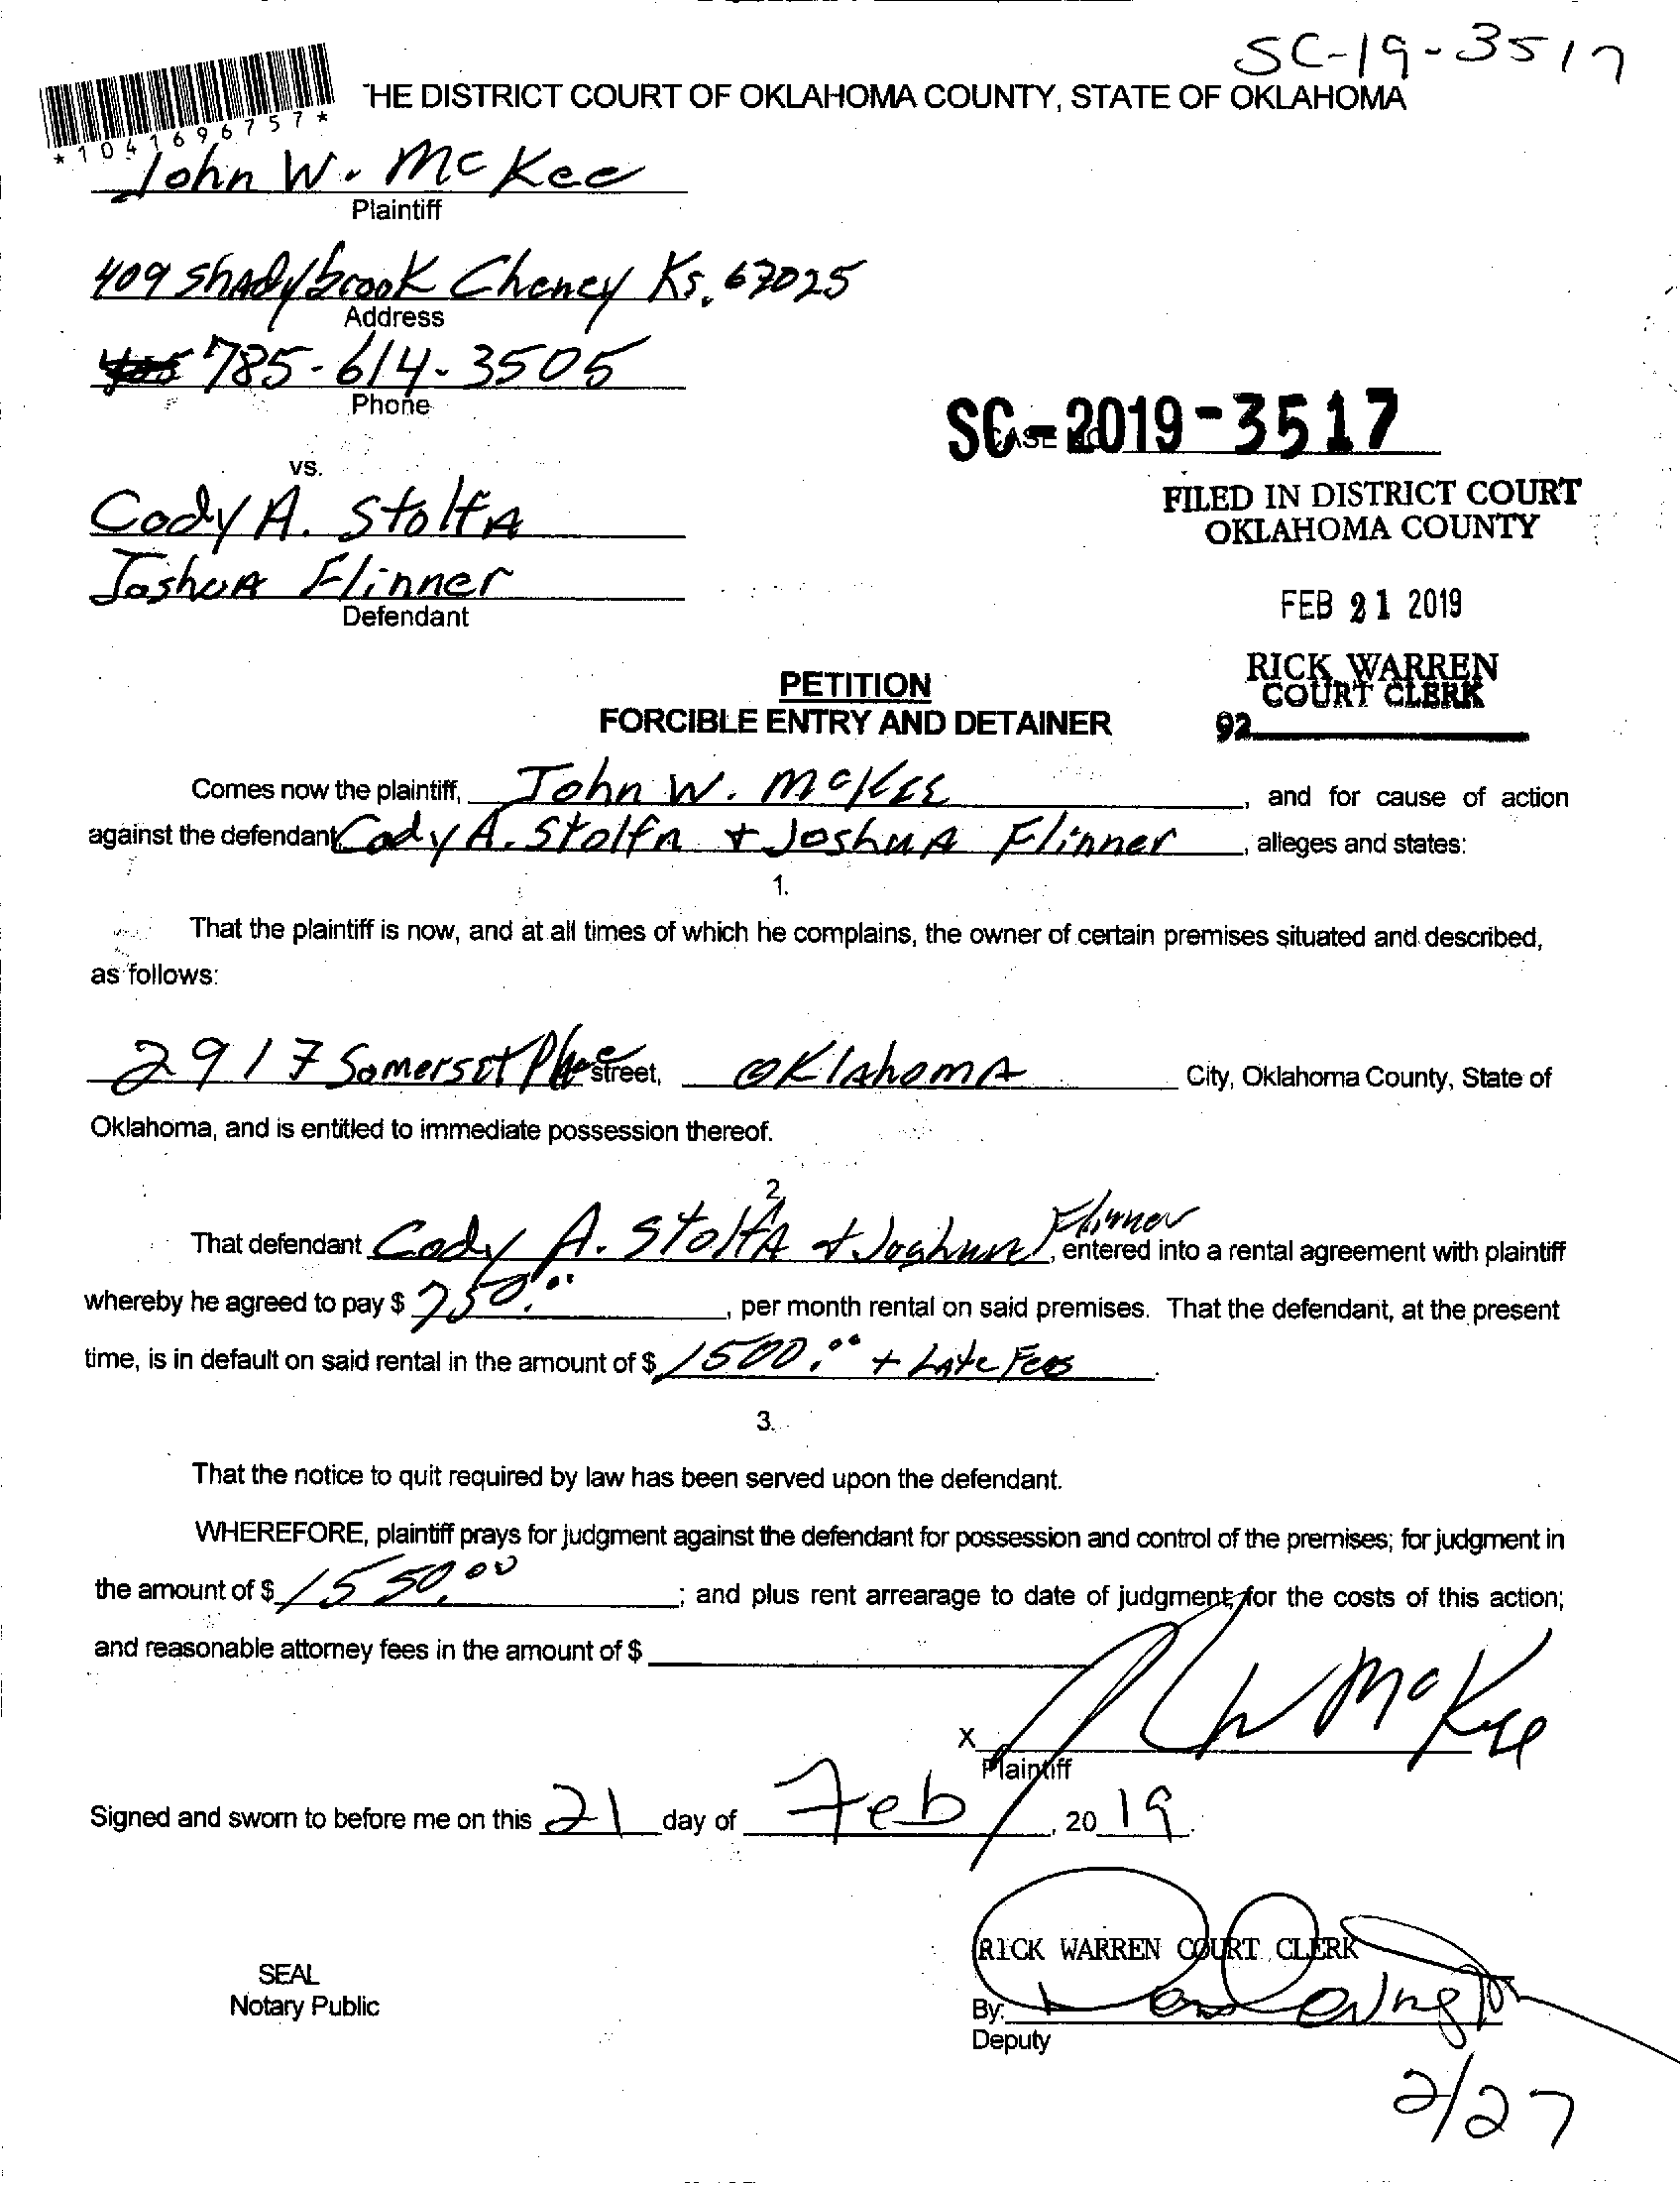 SC-19-3517
THE DISTRICT COURT OF OKLAHOMA COUNTY, STATE OF OKLAHOMA
*1041696757*
John W. McKee
Plaintiff
409 Shadybrook Cheney Ks. 67025
Address
785-614-3505
Phone
SC-2019-3517
CASE NO.
vs.
Cody A. Stolfa
Joshua Flinner
Defendant
FILED IN DISTRICT COURT
OKLAHOMA COUNTY
FEB 21 2019
RICK WARREN
COURT CLERK
92
PETITION
FORCIBLE ENTRY AND DETAINER
Comes now the plaintiff, John W. McKee, and for cause of action
against the defendant Cody A. Stolfa + Joshua Flinner, alleges and states:
1.
That the plaintiff is now, and at all times of which he complains, the owner of certain premises situated and described,
as follows:
2917 Somerset Place Street, Oklahoma City, Oklahoma County, State of
Oklahoma, and is entitled to immediate possession thereof.
2.
That defendant Cody A. Stolfa + Joshua Flinner, entered into a rental agreement with plaintiff
whereby he agreed to pay $ 750.00, per month rental on said premises. That the defendant, at the present
time, is in default on said rental in the amount of $ 1500.00 + Late Fees.
3.
That the notice to quit required by law has been served upon the defendant.
WHEREFORE, plaintiff prays for judgment against the defendant for possession and control of the premises; for judgment in
the amount of $ 1550.00; and plus rent arrearage to date of judgment; for the costs of this action;
and reasonable attorney fees in the amount of $
X W McKee
Plaintiff
Signed and sworn to before me on this 21 day of Feb, 2019.
RICK WARREN COURT CLERK
SEAL
Notary Public
By:
Deputy
2/27